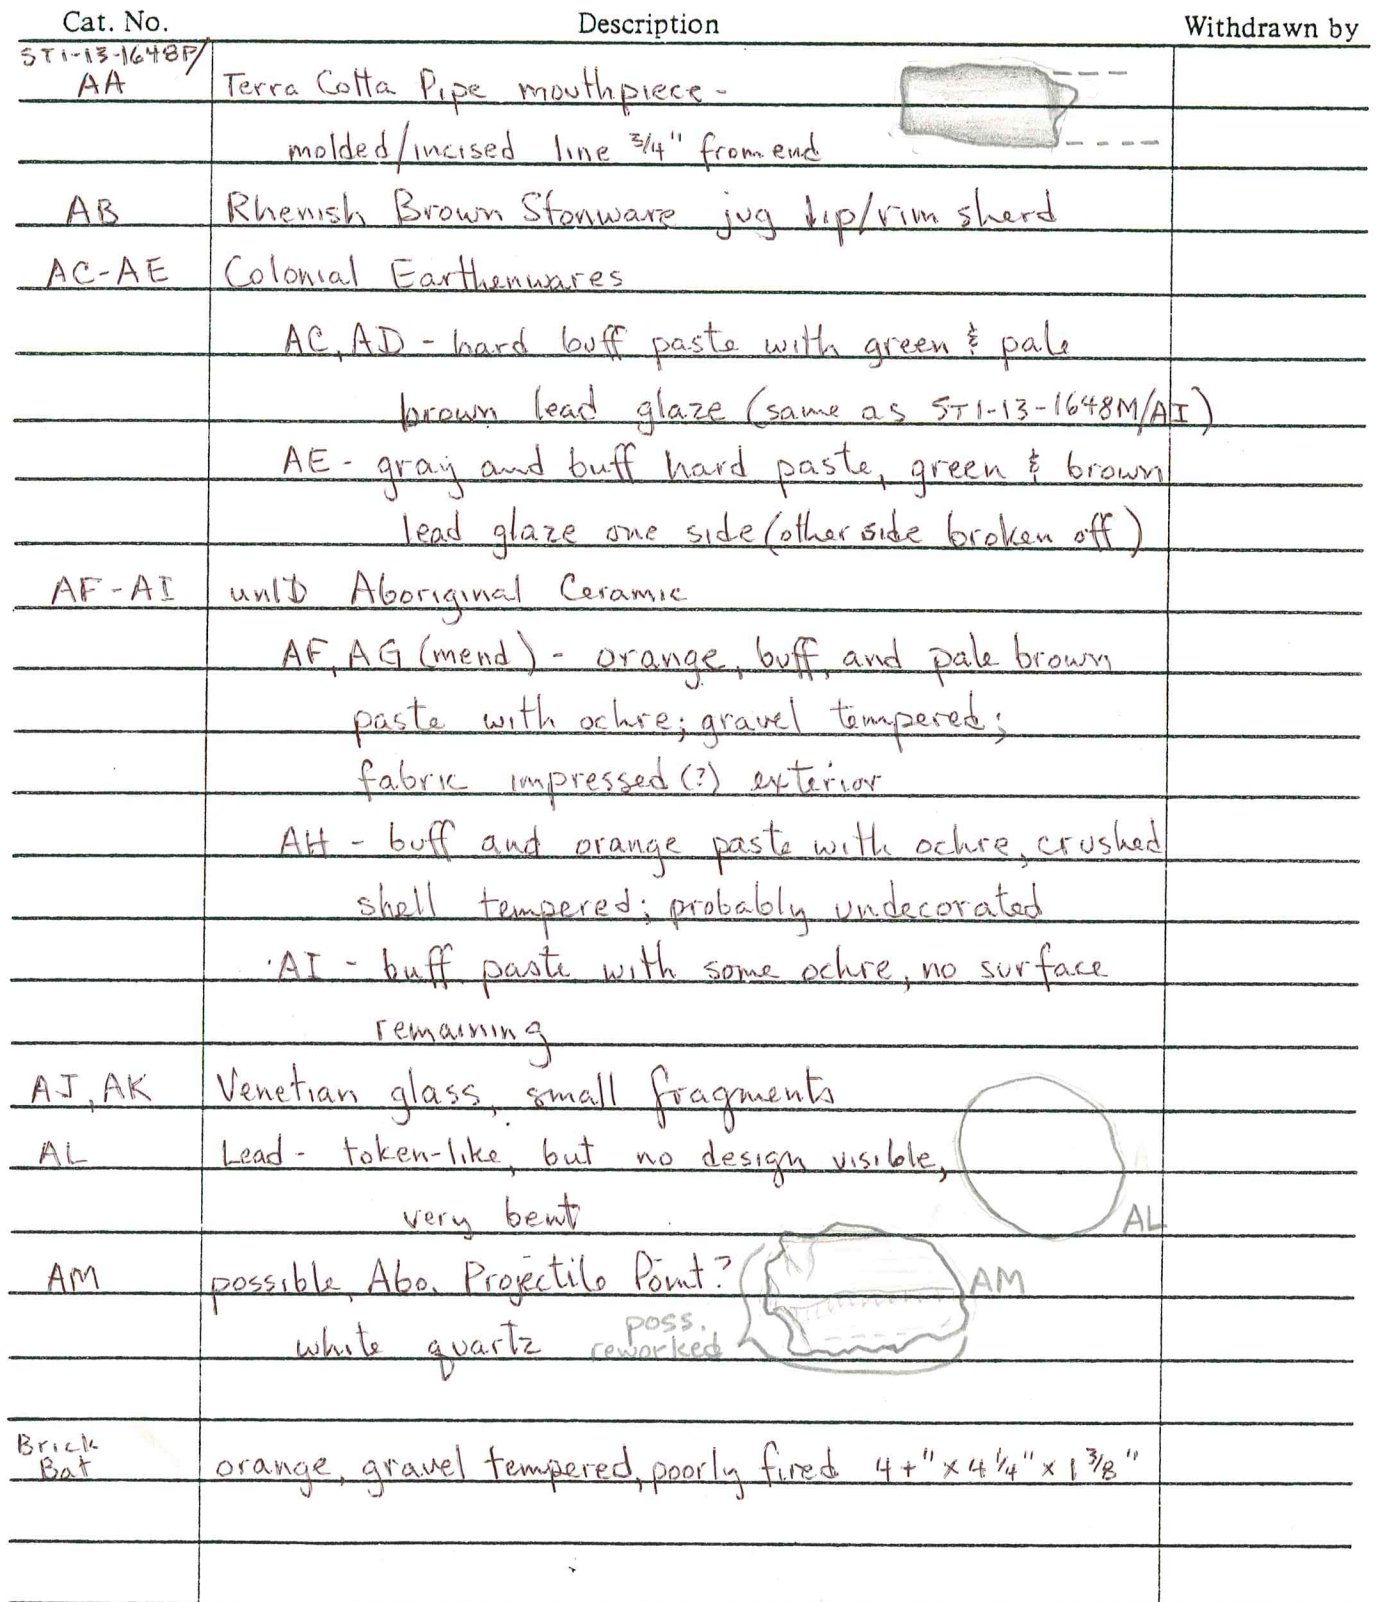 Cat. No. Description Withdrawn by
ST1-13-1648P/
AA Terra Cotta Pipe mouthpiece -
molded/incised line 3/4" from end
AB Rhenish Brown Stonware jug lip/rim sherd
AC-AE Colonial Earthenwares
AC, AD - hard buff paste with green & pale
brown lead glaze (same as ST1-13-1648M/AI)
AE - gray and buff hard paste, green & brown
lead glaze one side (other side broken off)
AF-AI unID Aboriginal Ceramic
AF, AG (mend) - orange, buff, and pale brown
paste with ochre; gravel tempered;
fabric impressed (?) exterior
AH - buff and orange paste with ochre, crushed
shell tempered; probably undecorated
AI - buff paste with some ochre, no surface
remaining
AJ, AK Venetian glass, small fragments
AL Lead - token-like, but no design visible,
very bent AL
AM possible Abo. Projectile Point? AM
white quartz poss.
reworked
Brick
Bat orange, gravel tempered, poorly fired 4+" x 4 1/4" x 1 3/8"